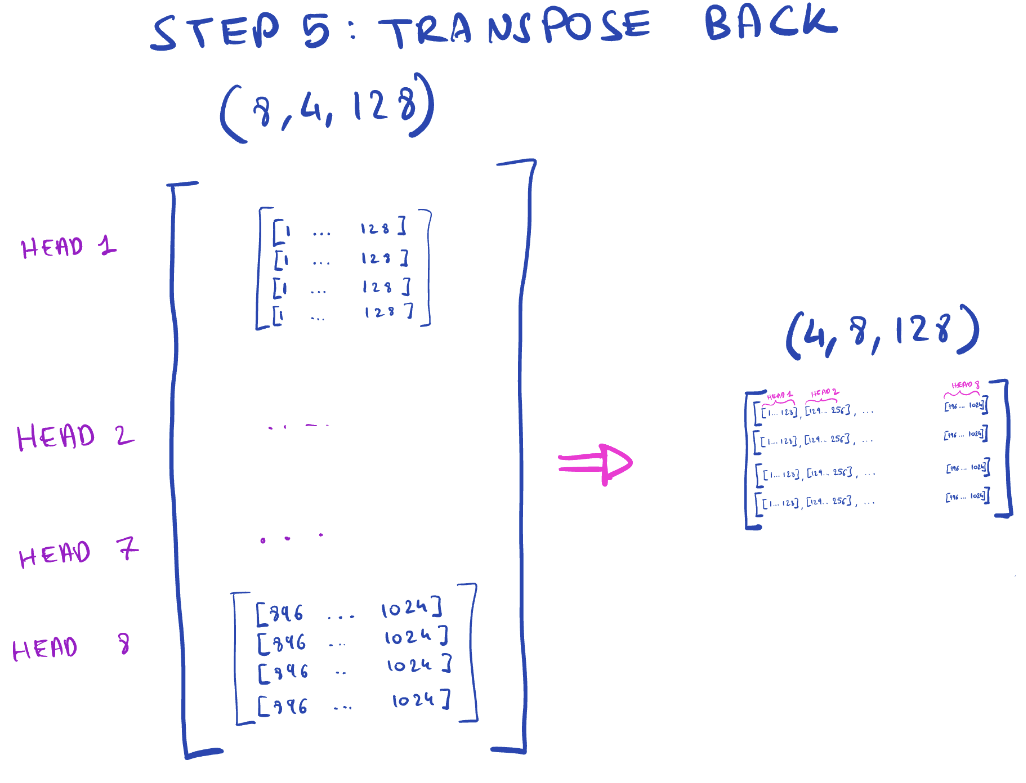 STEP 5: TRANSPOSE BACK
(8, 4, 128)
HEAD 1
[[1 ... 128]
[1 ... 128]
[1 ... 128]
[1 ... 128]]
HEAD 2
... 
HEAD 7
...
HEAD 8
[[896 ... 1024]
[896 ... 1024]
[896 .. 1024]
[896 ... 1024]]
(4, 8, 128)
HEAD 1 HEAD 2 HEAD 8
[[[1 ... 128], [129 ... 256], ... [896 ... 1024]]
[[1 ... 128], [129 ... 256], ... [896 ... 1024]]
[[1 ... 128], [129 ... 256], ... [896 ... 1024]]
[[1 ... 128], [129 ... 256], ... [896 ... 1024]]]